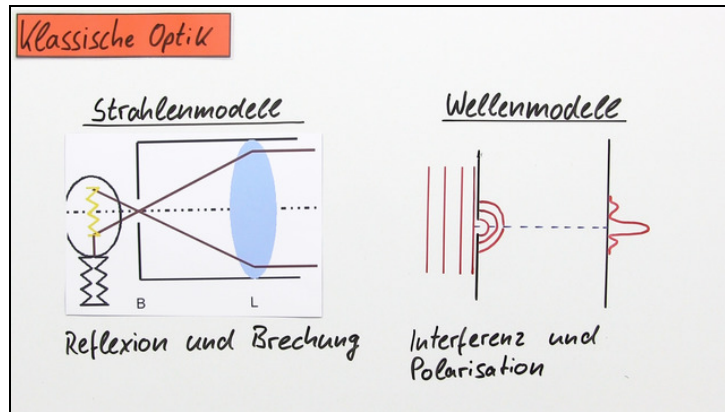 Klassische Optik
Strahlenmodell
B L
Reflexion und Brechung
Wellenmodell
Interferenz und
Polarisation